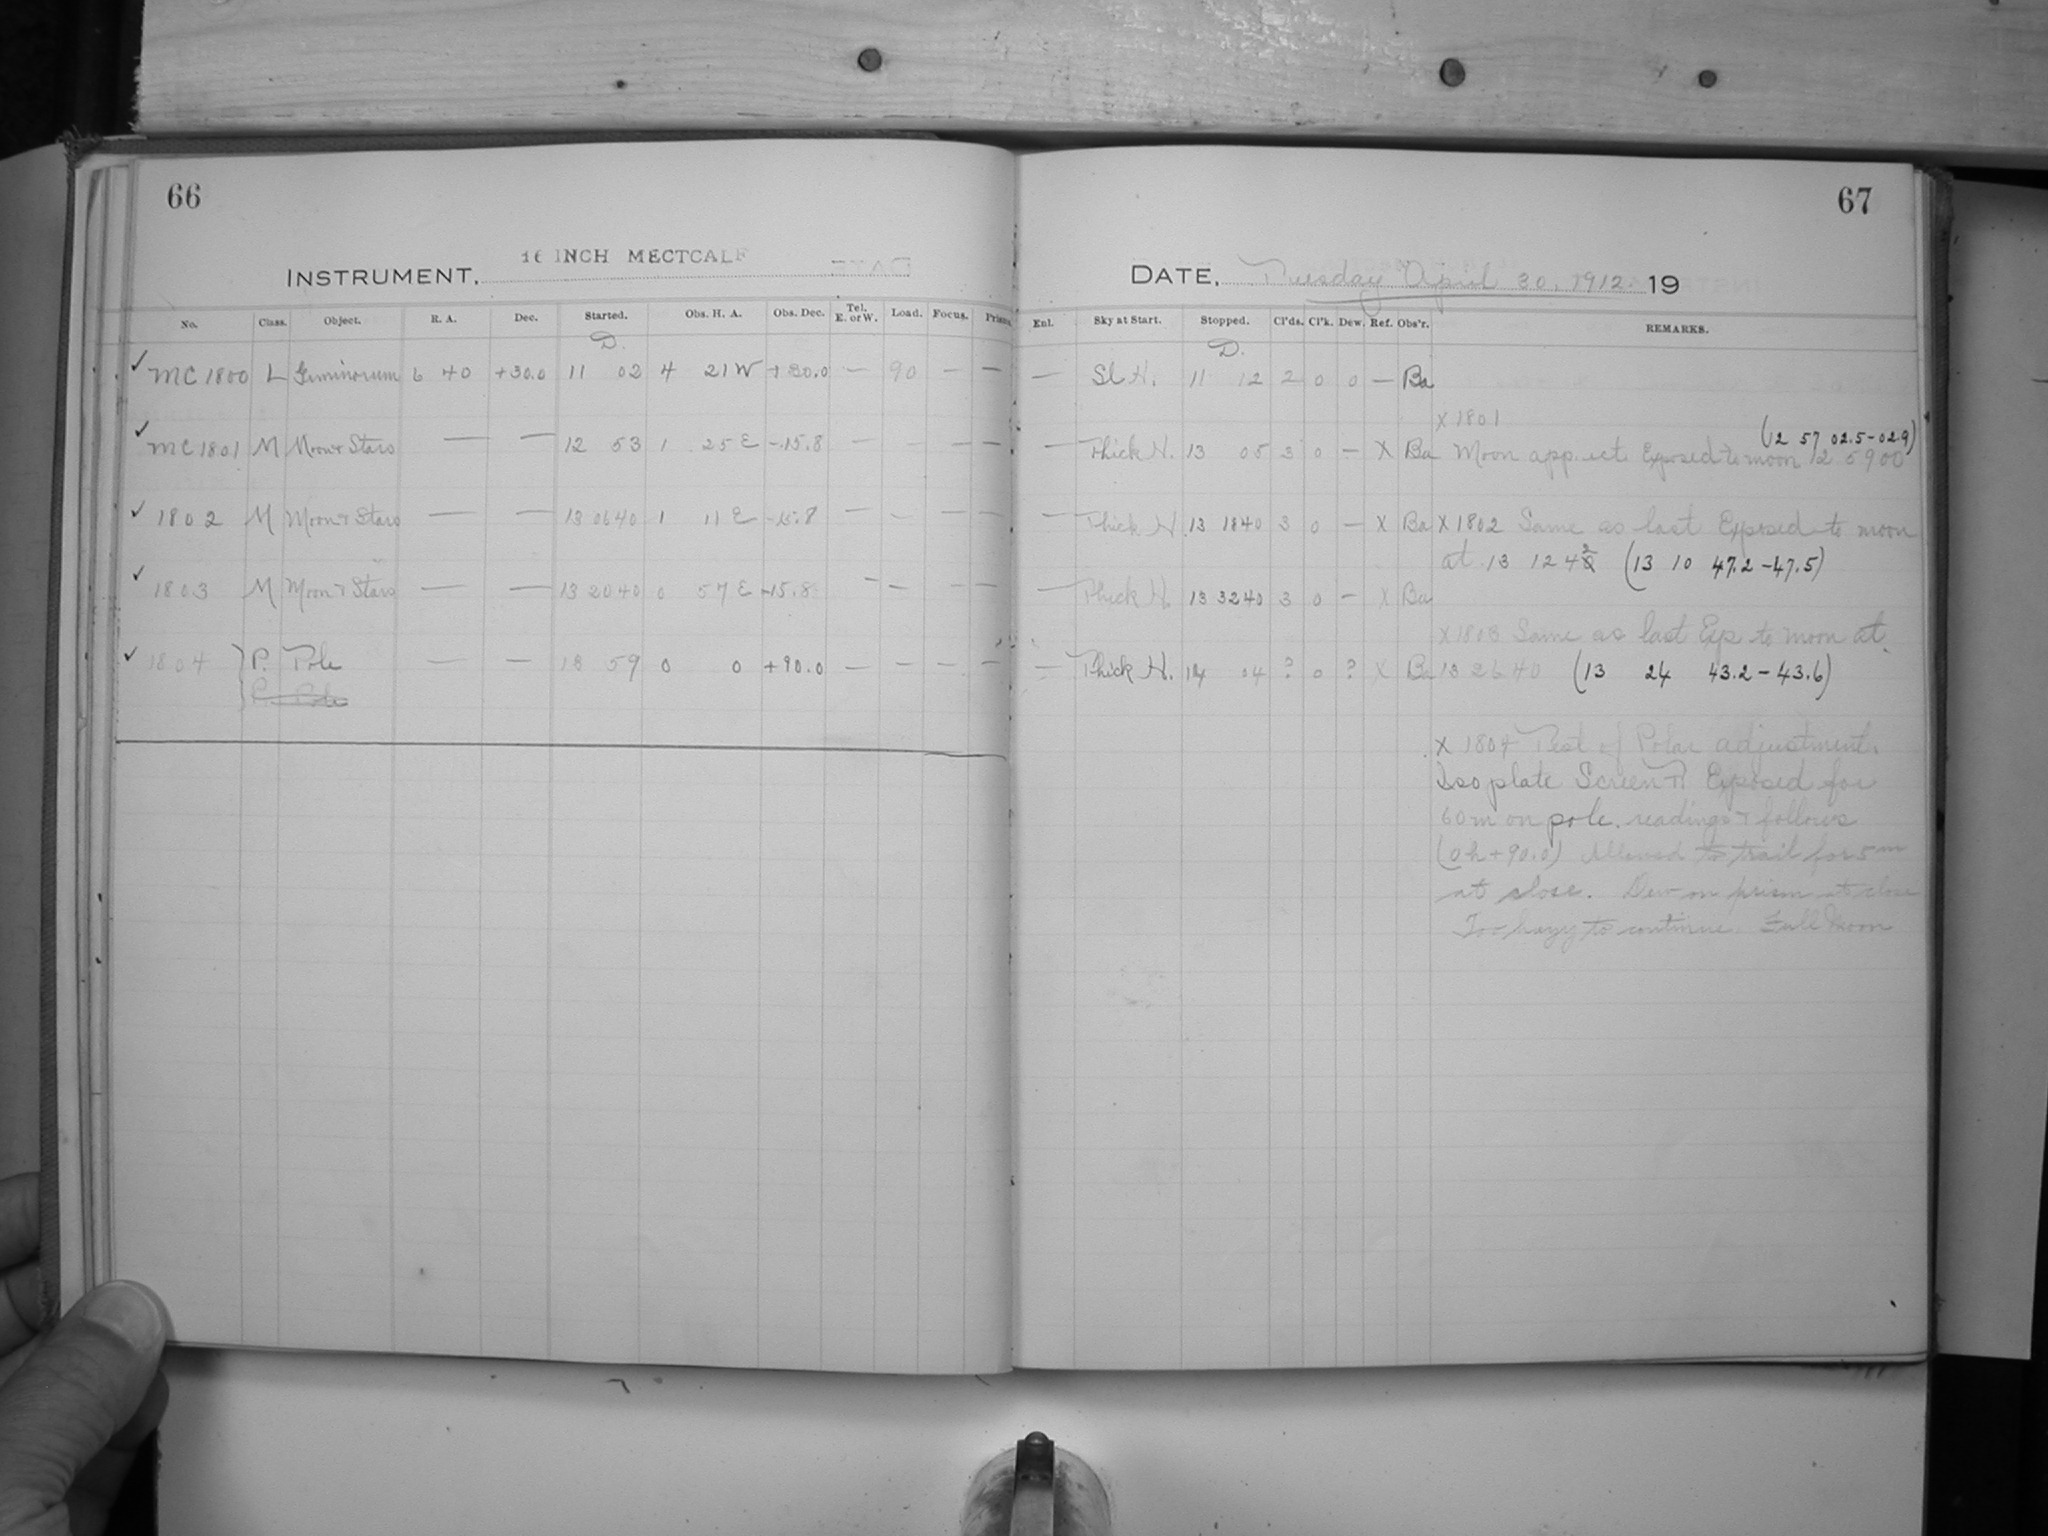 66
16 INCH MECTCALF
INSTRUMENT.
No. Class. Object. R. A. Dec. Started. Obs. H. A. Obs. Dec. Tel. E. or W. Load. Focus. Prism
D.
✓ MC 1800 L Geminorum 6 40 +30.0 11 02 4 21 W +30.0 — 90 — —
✓ MC 1801 M Moon & Stars — — 12 53 1 25 E -15.8 — — — —
✓ 1802 M Moon & Stars — — 13 06 40 1 11 E -15.8 — — — —
✓ 1803 M Moon & Stars — — 13 20 40 0 57 E -15.8 — — — —
✓ 1804 } P. Pole — — 18 59 0 0 +90.0 — — — —
P. Pole
67
DATE, Tuesday April 30, 1912. 19
Enl. Sky at Start. Stopped. Cl'ds. Cl'k. Dew. Ref. Obs'r. REMARKS.
D.
— Sl H. 11 12 2 0 0 — Ba
X 1801
(12 57 02.5 - 02.9)
— Thick H. 13 05 3 0 — X Ba Moon app. Exposed to moon 12 59 00
— Thick H. 13 18 40 3 0 — X Ba X 1802 Same as last Exposed to moon
at 13 12 42 (13 10 47.2 - 47.5)
— Thick H. 13 32 40 3 0 — X Ba
X 1803 Same as last Exp to moon at
— Thick H. 14 04 ? 0 ? X Ba 13 26 40 (13 24 43.2 - 43.6)
X 1804 Test of Polar adjustment.
Iso plate Screen Exposed for
60m on pole. readings follows
(0h + 90.0) Allowed to trail for 5m
at close. Dew on prism at close
Too hazy to continue. Full Moon